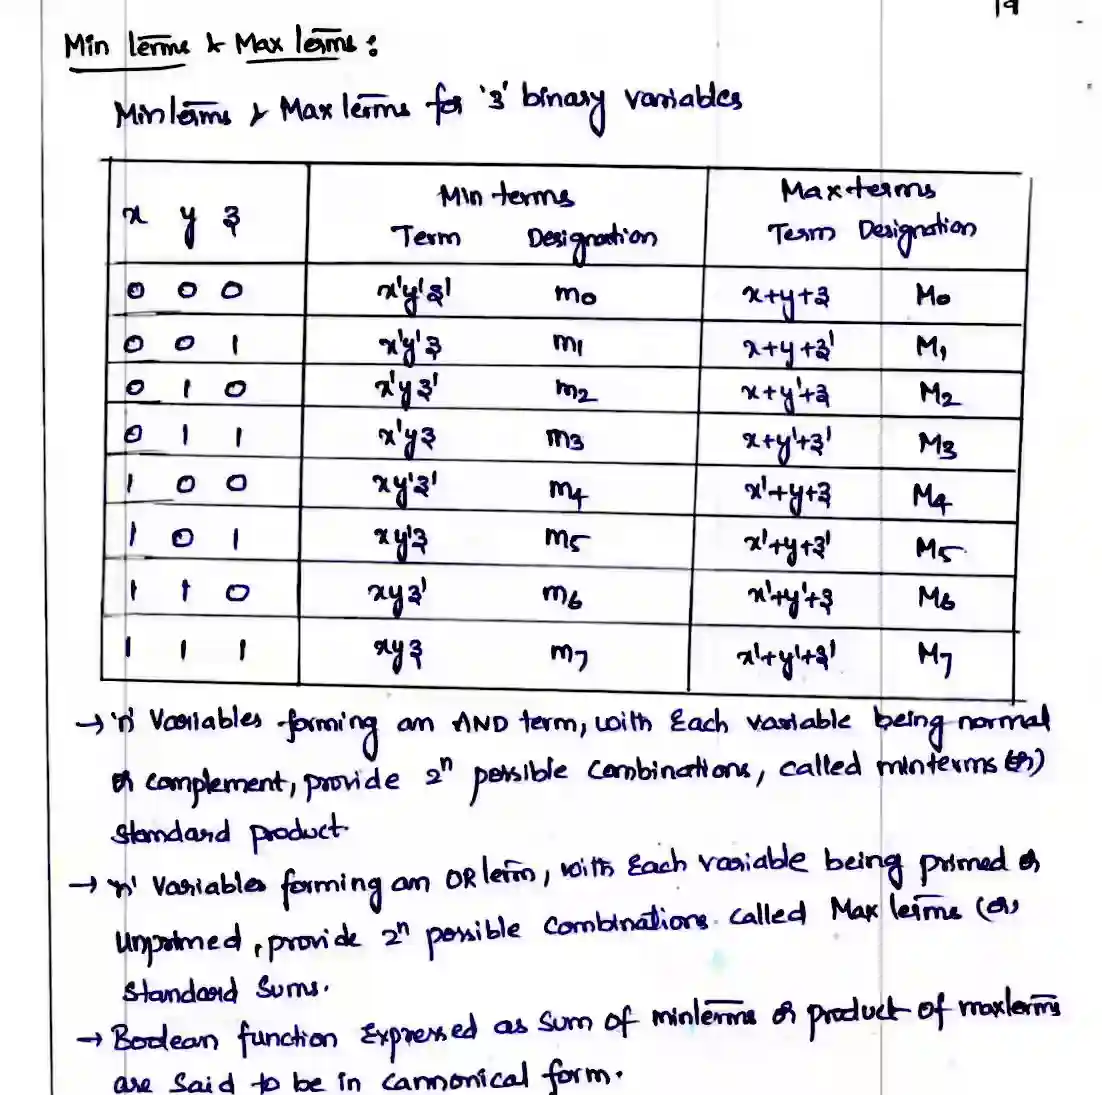 19
Min terms & Max terms :
Min terms & Max terms for '3' binary variables
x y z Min terms Max terms
Term Designation Term Designation
0 0 0 x'y'z' m0 x+y+z M0
0 0 1 x'y'z m1 x+y+z' M1
0 1 0 x'yz' m2 x+y'+z M2
0 1 1 x'yz m3 x+y'+z' M3
1 0 0 xy'z' m4 x'+y+z M4
1 0 1 xy'z m5 x'+y+z' M5
1 1 0 xyz' m6 x'+y'+z M6
1 1 1 xyz m7 x'+y'+z' M7
→ 'n' Variables forming an AND term, with Each variable being normal
or complement, provide 2ⁿ possible Combinations, called minterms (or)
standard product.
→ 'n' Variables forming an OR term, with Each variable being primed or
Unprimed, provide 2ⁿ possible Combinations. called Max terms (or)
Standard Sums.
→ Boolean function Expressed as Sum of minterms or product of maxterms
are Said to be in cannonical form.